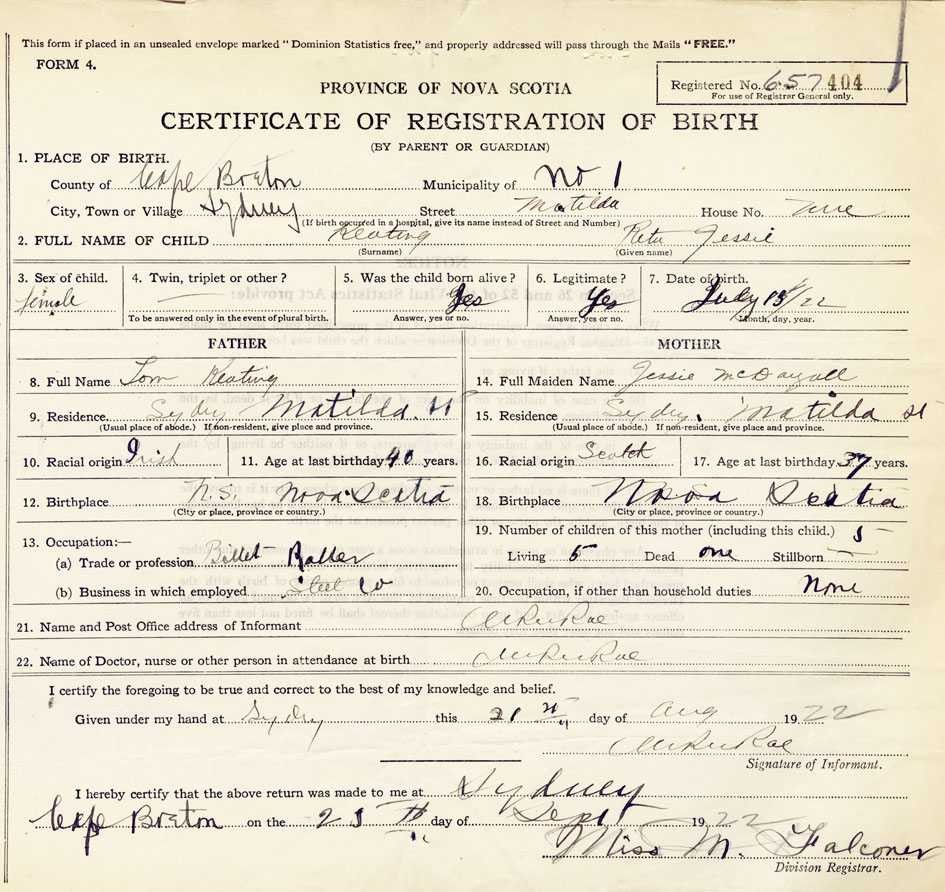 This form if placed in an unsealed envelope marked "Dominion Statistics free," and properly addressed will pass through the Mails "FREE."
FORM 4.
Registered No. 657 404
For use of Registrar General only.
PROVINCE OF NOVA SCOTIA
CERTIFICATE OF REGISTRATION OF BIRTH
(BY PARENT OR GUARDIAN)
1. PLACE OF BIRTH.
County of Cape Breton Municipality of No 1
City, Town or Village Sydney Street Matilda House No.
(If birth occurred in a hospital, give its name instead of Street and Number)
2. FULL NAME OF CHILD Keating Rita Jessie
(Surname) (Given name)
3. Sex of child. 4. Twin, triplet or other? 5. Was the child born alive? 6. Legitimate? 7. Date of birth.
female Yes Yes July 13/22
To be answered only in the event of plural birth. Answer, yes or no. Answer, yes or no. Month, day, year.
FATHER
8. Full Name Tom Keating
9. Residence. Sydney Matilda. St
(Usual place of abode.) If non-resident, give place and province.
10. Racial origin Irish 11. Age at last birthday 40 years.
12. Birthplace N.S. Nova Scotia
(City or place, province or country.)
13. Occupation:—
(a) Trade or profession Billet Roller
(b) Business in which employed Steel Co
MOTHER
14. Full Maiden Name Jessie McDougall
15. Residence Sydney. Matilda St
(Usual place of abode.) If non-resident, give place and province.
16. Racial origin Scotch 17. Age at last birthday 37 years.
18. Birthplace Nova Scotia
(City or place, province or country.)
19. Number of children of this mother (including this child.) 5
Living 5 Dead one Stillborn
20. Occupation, if other than household duties None
21. Name and Post Office address of Informant
22. Name of Doctor, nurse or other person in attendance at birth
I certify the foregoing to be true and correct to the best of my knowledge and belief.
Given under my hand at Sydney this 21 day of Aug 1922
Signature of Informant.
I hereby certify that the above return was made to me at Sydney
Cape Breton on the 25 th day of Sept 1922
Miss M. Falconer
Division Registrar.